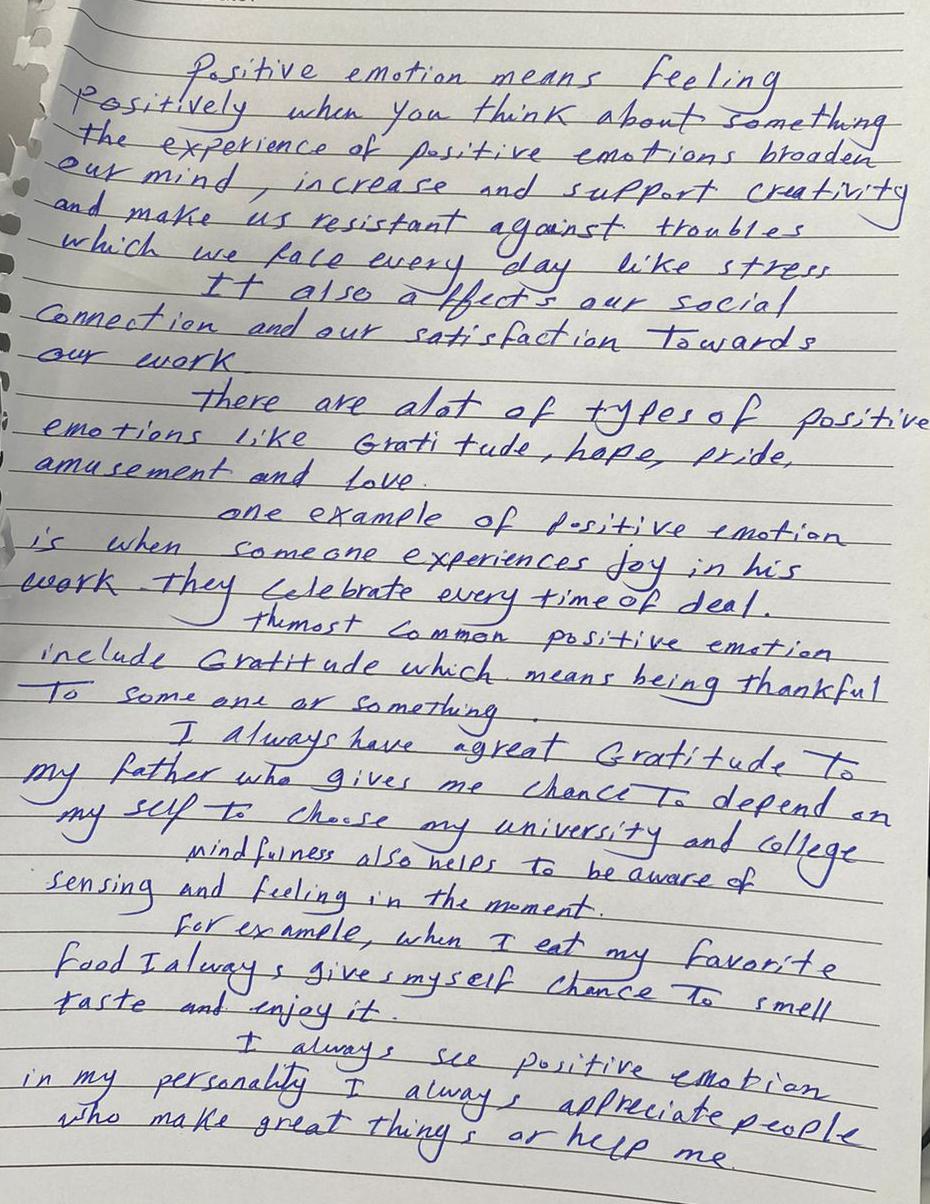 Positive emotion means feeling
Positively when you think about something
the experience of positive emotions broaden
our mind, increase and support creativity
and make us resistant against troubles
which we face every day like stress
It also affects our social
Connection and our satisfaction Towards
our work
there are alot of types of positive
emotions like Gratitude, hope, pride,
amusement and love.
one example of positive emotion
is when someone experiences joy in his
work they celebrate every time of deal.
themost common positive emotion
include Gratitude which means being thankful
To some one or something.
I always have agreat Gratitude To
my father who gives me chance To depend on
my self to choose my university and college
mindfulness also helps to be aware of
sensing and feeling in the moment.
For example, when I eat my favorite
food I always gives myself chance To smell
taste and enjoy it.
I always see positive emotion
in my personality I always appreciate people
who make great things or help me.